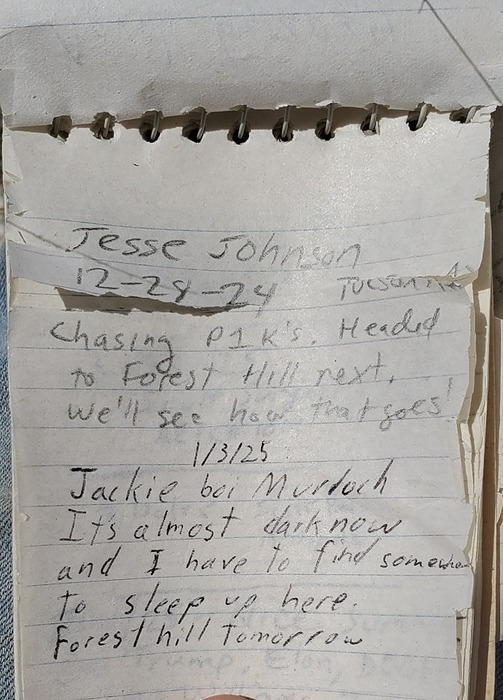 Jesse Johnson
12-28-24 Tucson AZ
Chasing P1K's. Headed
to Forest Hill next.
We'll see how that goes!
1/3/25
Jackie boi Murdoch
It's almost dark now
and I have to find somewhere
to sleep up here.
Forest hill tomorrow
Trump, Elon,